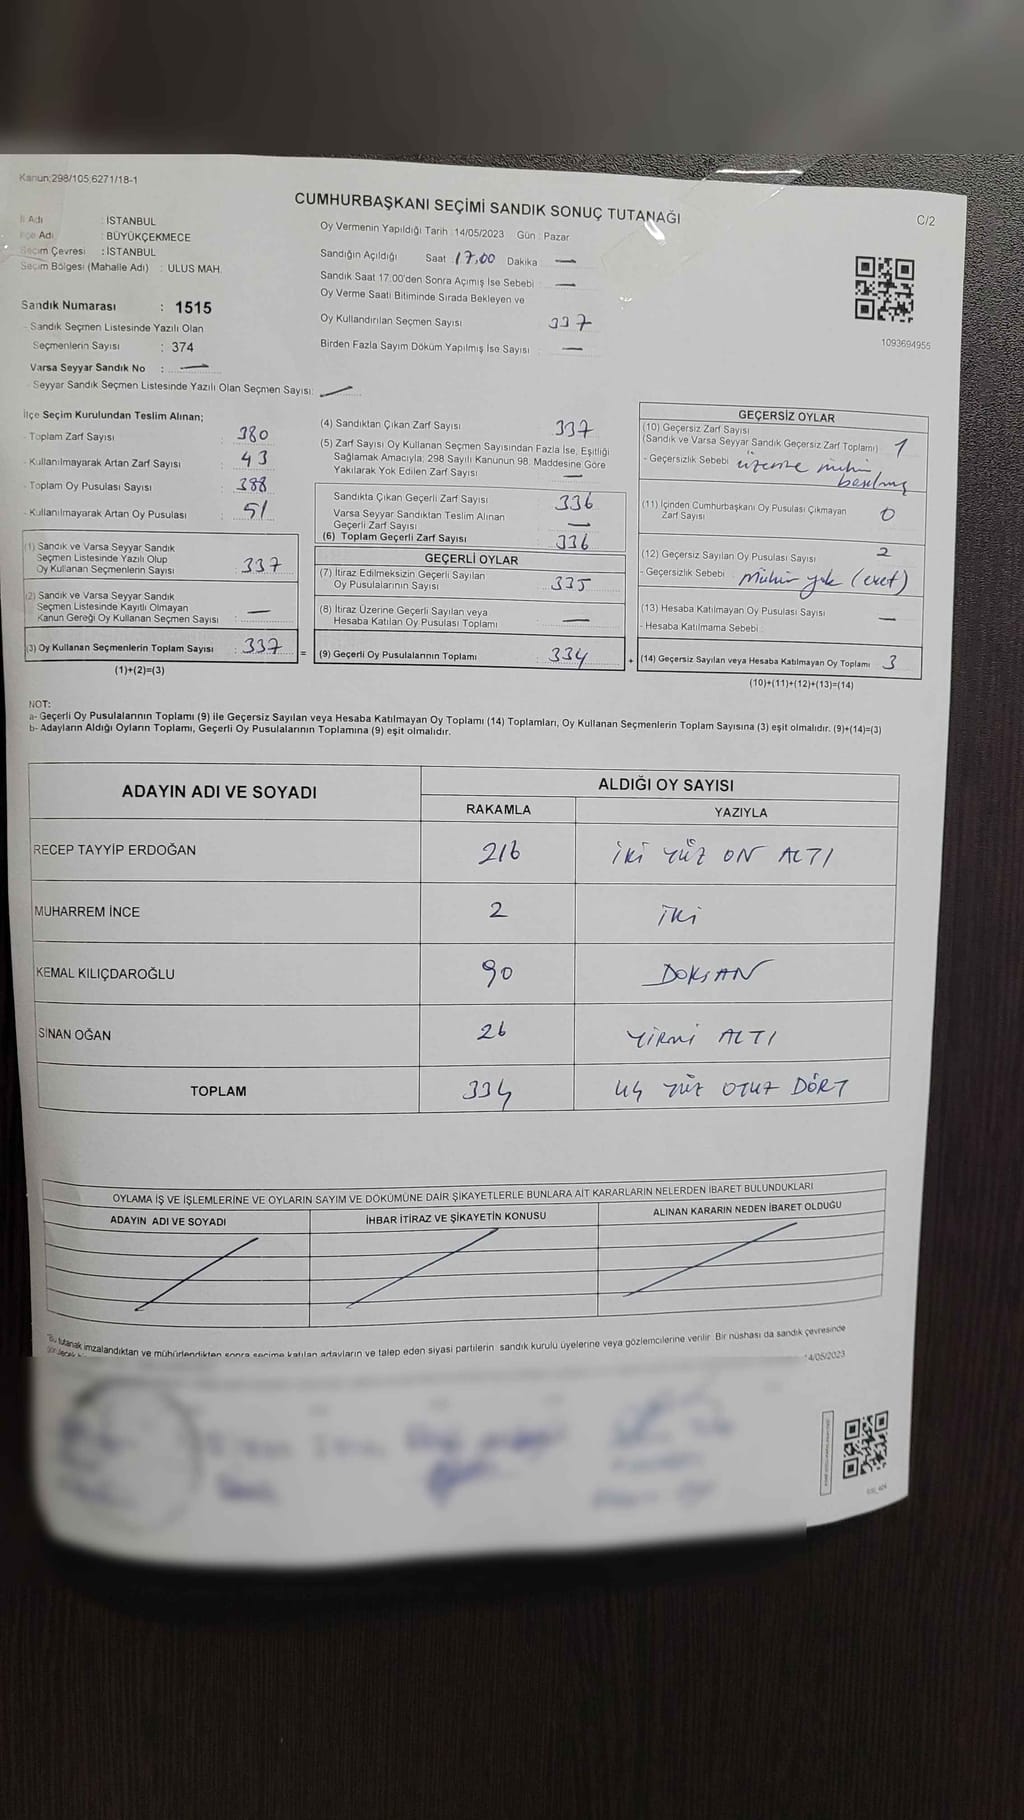 Kanun:298/105,6271/18-1
CUMHURBAŞKANI SEÇİMİ SANDIK SONUÇ TUTANAĞI
C/2
İl Adı : İSTANBUL
İlçe Adı : BÜYÜKÇEKMECE
Seçim Çevresi : İSTANBUL
Seçim Bölgesi (Mahalle Adı) : ULUS MAH.
Sandık Numarası : 1515
- Sandık Seçmen Listesinde Yazılı Olan
Seçmenlerin Sayısı : 374
Varsa Seyyar Sandık No : —
- Seyyar Sandık Seçmen Listesinde Yazılı Olan Seçmen Sayısı: —
Oy Vermenin Yapıldığı Tarih : 14/05/2023 Gün : Pazar
Sandığın Açıldığı Saat : 17,00 Dakika : —
Sandık Saat 17:00'den Sonra Açımış İse Sebebi : —
Oy Verme Saati Bitiminde Sırada Bekleyen ve
Oy Kullandırılan Seçmen Sayısı 337
Birden Fazla Sayım Döküm Yapılmış İse Sayısı : —
1093694955
İlçe Seçim Kurulundan Teslim Alınan;
- Toplam Zarf Sayısı : 380
- Kullanılmayarak Artan Zarf Sayısı : 43
- Toplam Oy Pusulası Sayısı : 388
- Kullanılmayarak Artan Oy Pusulası : 51
(1) Sandık ve Varsa Seyyar Sandık
Seçmen Listesinde Yazılı Olup
Oy Kullanan Seçmenlerin Sayısı : 337
(2) Sandık ve Varsa Seyyar Sandık
Seçmen Listesinde Kayıtlı Olmayan
Kanun Gereği Oy Kullanan Seçmen Sayısı : —
(3) Oy Kullanan Seçmenlerin Toplam Sayısı : 337
(1)+(2)=(3)
=
(4) Sandıktan Çıkan Zarf Sayısı : 337
(5) Zarf Sayısı Oy Kullanan Seçmen Sayısından Fazla İse, Eşitliği
Sağlamak Amacıyla, 298 Sayılı Kanunun 98. Maddesine Göre
Yakılarak Yok Edilen Zarf Sayısı : —
Sandıkta Çıkan Geçerli Zarf Sayısı : 336
Varsa Seyyar Sandıktan Teslim Alınan
Geçerli Zarf Sayısı : —
(6) Toplam Geçerli Zarf Sayısı : 336
GEÇERLİ OYLAR
(7) İtiraz Edilmeksizin Geçerli Sayılan
Oy Pusulalarının Sayısı : 335
(8) İtiraz Üzerine Geçerli Sayılan veya
Hesaba Katılan Oy Pusulası Toplamı : —
(9) Geçerli Oy Pusulalarının Toplamı : 334
+
GEÇERSİZ OYLAR
(10) Geçersiz Zarf Sayısı
(Sandık ve Varsa Seyyar Sandık Geçersiz Zarf Toplamı) : 1
- Geçersizlik Sebebi : üzerine mühür
basılmış
(11) İçinden Cumhurbaşkanı Oy Pusulası Çıkmayan
Zarf Sayısı : 0
(12) Geçersiz Sayılan Oy Pusulası Sayısı : 2
- Geçersizlik Sebebi : Mühür yok (evet)
(13) Hesaba Katılmayan Oy Pusulası Sayısı : —
- Hesaba Katılmama Sebebi :
(14) Geçersiz Sayılan veya Hesaba Katılmayan Oy Toplamı : 3
(10)+(11)+(12)+(13)=(14)
NOT:
a- Geçerli Oy Pusulalarının Toplamı (9) ile Geçersiz Sayılan veya Hesaba Katılmayan Oy Toplamı (14) Toplamları, Oy Kullanan Seçmenlerin Toplam Sayısına (3) eşit olmalıdır. (9)+(14)=(3)
b- Adayların Aldığı Oyların Toplamı, Geçerli Oy Pusulalarının Toplamına (9) eşit olmalıdır.
ADAYIN ADI VE SOYADI
ALDIĞI OY SAYISI
RAKAMLA YAZIYLA
RECEP TAYYİP ERDOĞAN 216 İKİ YÜZ ON ALTI
MUHARREM İNCE 2 İKİ
KEMAL KILIÇDAROĞLU 90 DOKSAN
SİNAN OĞAN 26 YİRMİ ALTI
TOPLAM 334 ÜÇ YÜZ OTUZ DÖRT
OYLAMA İŞ VE İŞLEMLERİNE VE OYLARIN SAYIM VE DÖKÜMÜNE DAİR ŞİKAYETLERLE BUNLARA AİT KARARLARIN NELERDEN İBARET BULUNDUKLARI
ADAYIN ADI VE SOYADI İHBAR İTİRAZ VE ŞİKAYETİN KONUSU ALINAN KARARIN NEDEN İBARET OLDUĞU
*Bu tutanak imzalandıktan ve mühürlendikten sonra seçime katılan adayların ve talep eden siyasi partilerin sandık kurulu üyelerine veya gözlemcilerine verilir. Bir nüshası da sandık çevresinde
14/05/2023